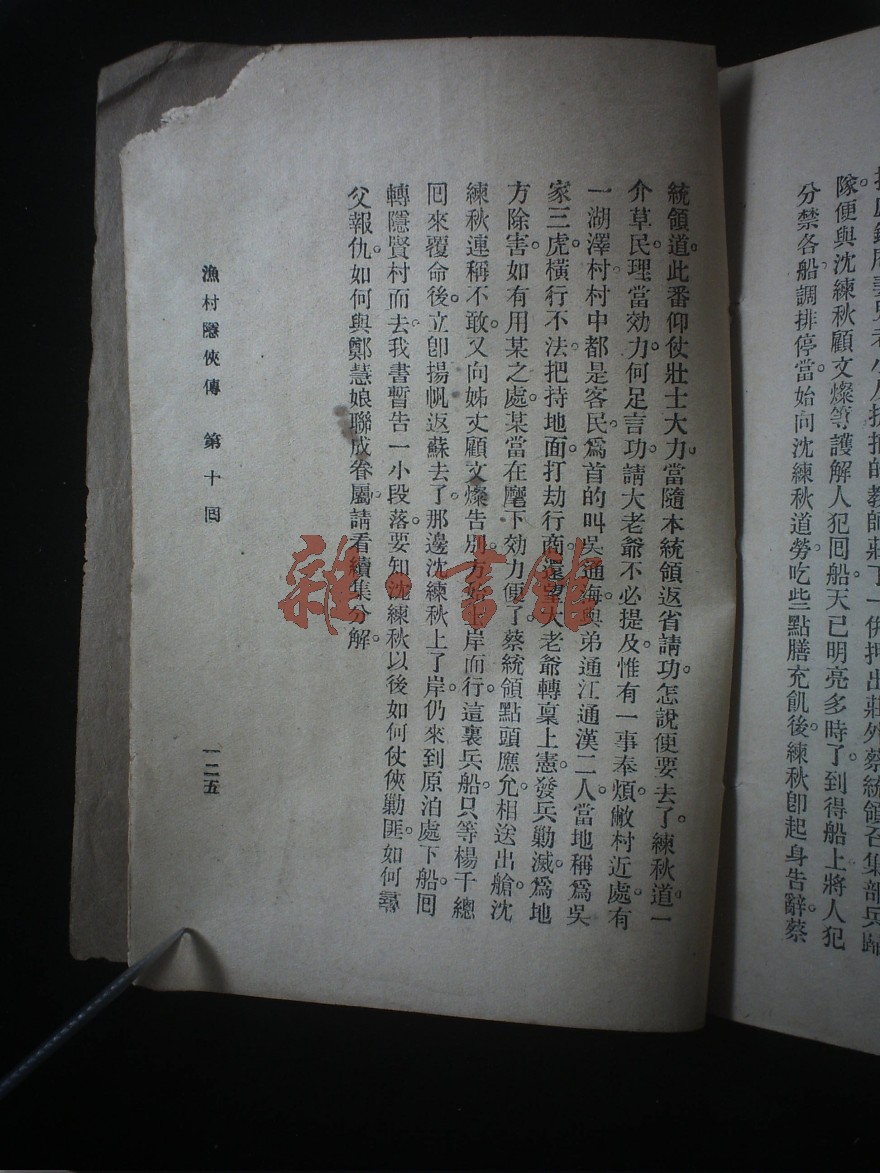 老小及抗拒的教師莊丁一併押出莊外蔡統領召集部兵歸
隊便與沈練秋顧文燦等護解人犯囘船天已明亮多時了。到得船上將人犯
分禁各船。調排停當。始向沈練秋道勞。吃些點膳充飢後。練秋卽起身告辭。蔡
統領道。此番仰仗壯士大力。當隨本統領返省請功。怎說便要去了。練秋道。一
介草民。理當効力。何足言功。請大老爺不必提及。惟有一事奉煩。敝村近處。有
一湖澤村。村中都是客民。爲首的叫吳通海。與弟通江通漢二人。當地稱爲吳
家三虎。橫行不法。把持地面。打劫行商。還望大老爺轉稟上憲。發兵勦滅。爲地
方除害。如有用某之處。某當在麾下効力便了。蔡統領點頭應允。相送出艙。沈
練秋連稱不敢。又向姊丈顧文燦告別。方始上岸而行。這裏兵船。只等楊千總
囘來覆命後。立卽揚帆返蘇去了。那邊沈練秋上了岸。仍來到原泊處下船。囘
轉隱賢村而去。我書暫告一小段落。要知沈練秋以後如何仗俠勦匪。如何尋
父報仇。如何與鄭慧娘聯成眷屬。請看續集分解。
漁村隱俠傳　第十囘
一二五
雜·書館